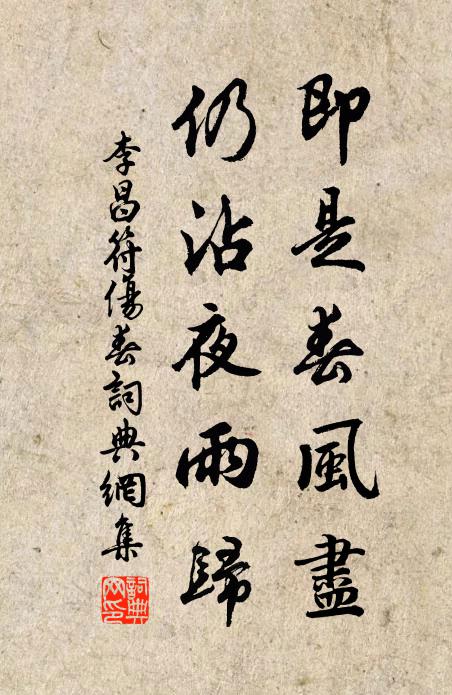 即是春風盡
仍沾夜雨歸
李昌符傷春詞典網集
詞典网印